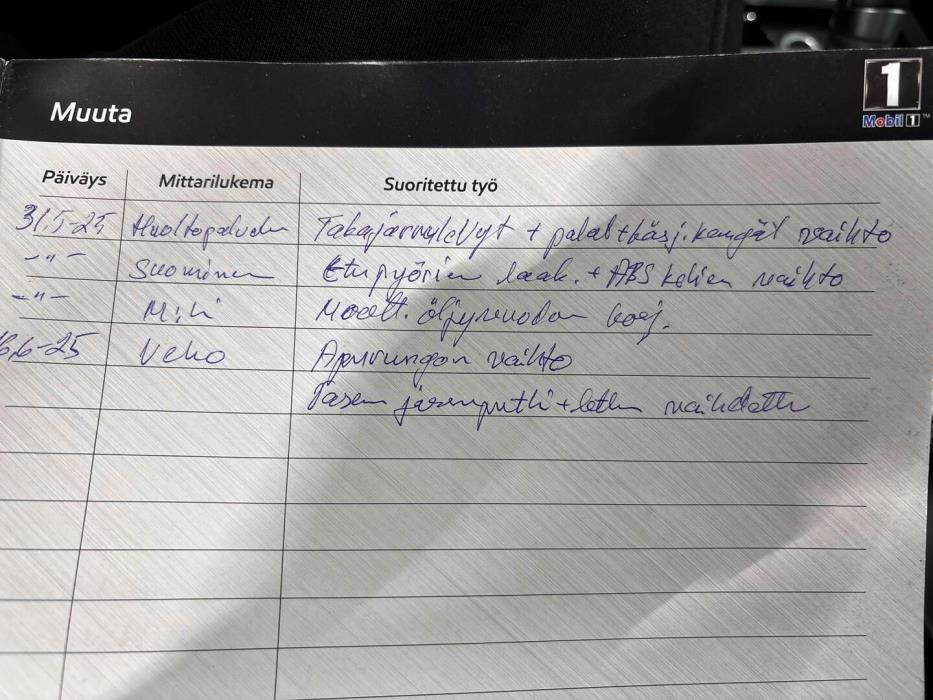 Muuta
1
Mobil 1™
Päiväys Mittarilukema Suoritettu työ
31.5-25 Huoltopalvelu Takajarrulevyt + palat + käsj.kengät vaihto
-"- Suominen Etupyörien laak. + ABS kehien vaihto
-"- Moott. öljyvuodon korj.
6.6-25 Veho Apurungon vaihto
Vasen jarruputki + letku vaihdettu